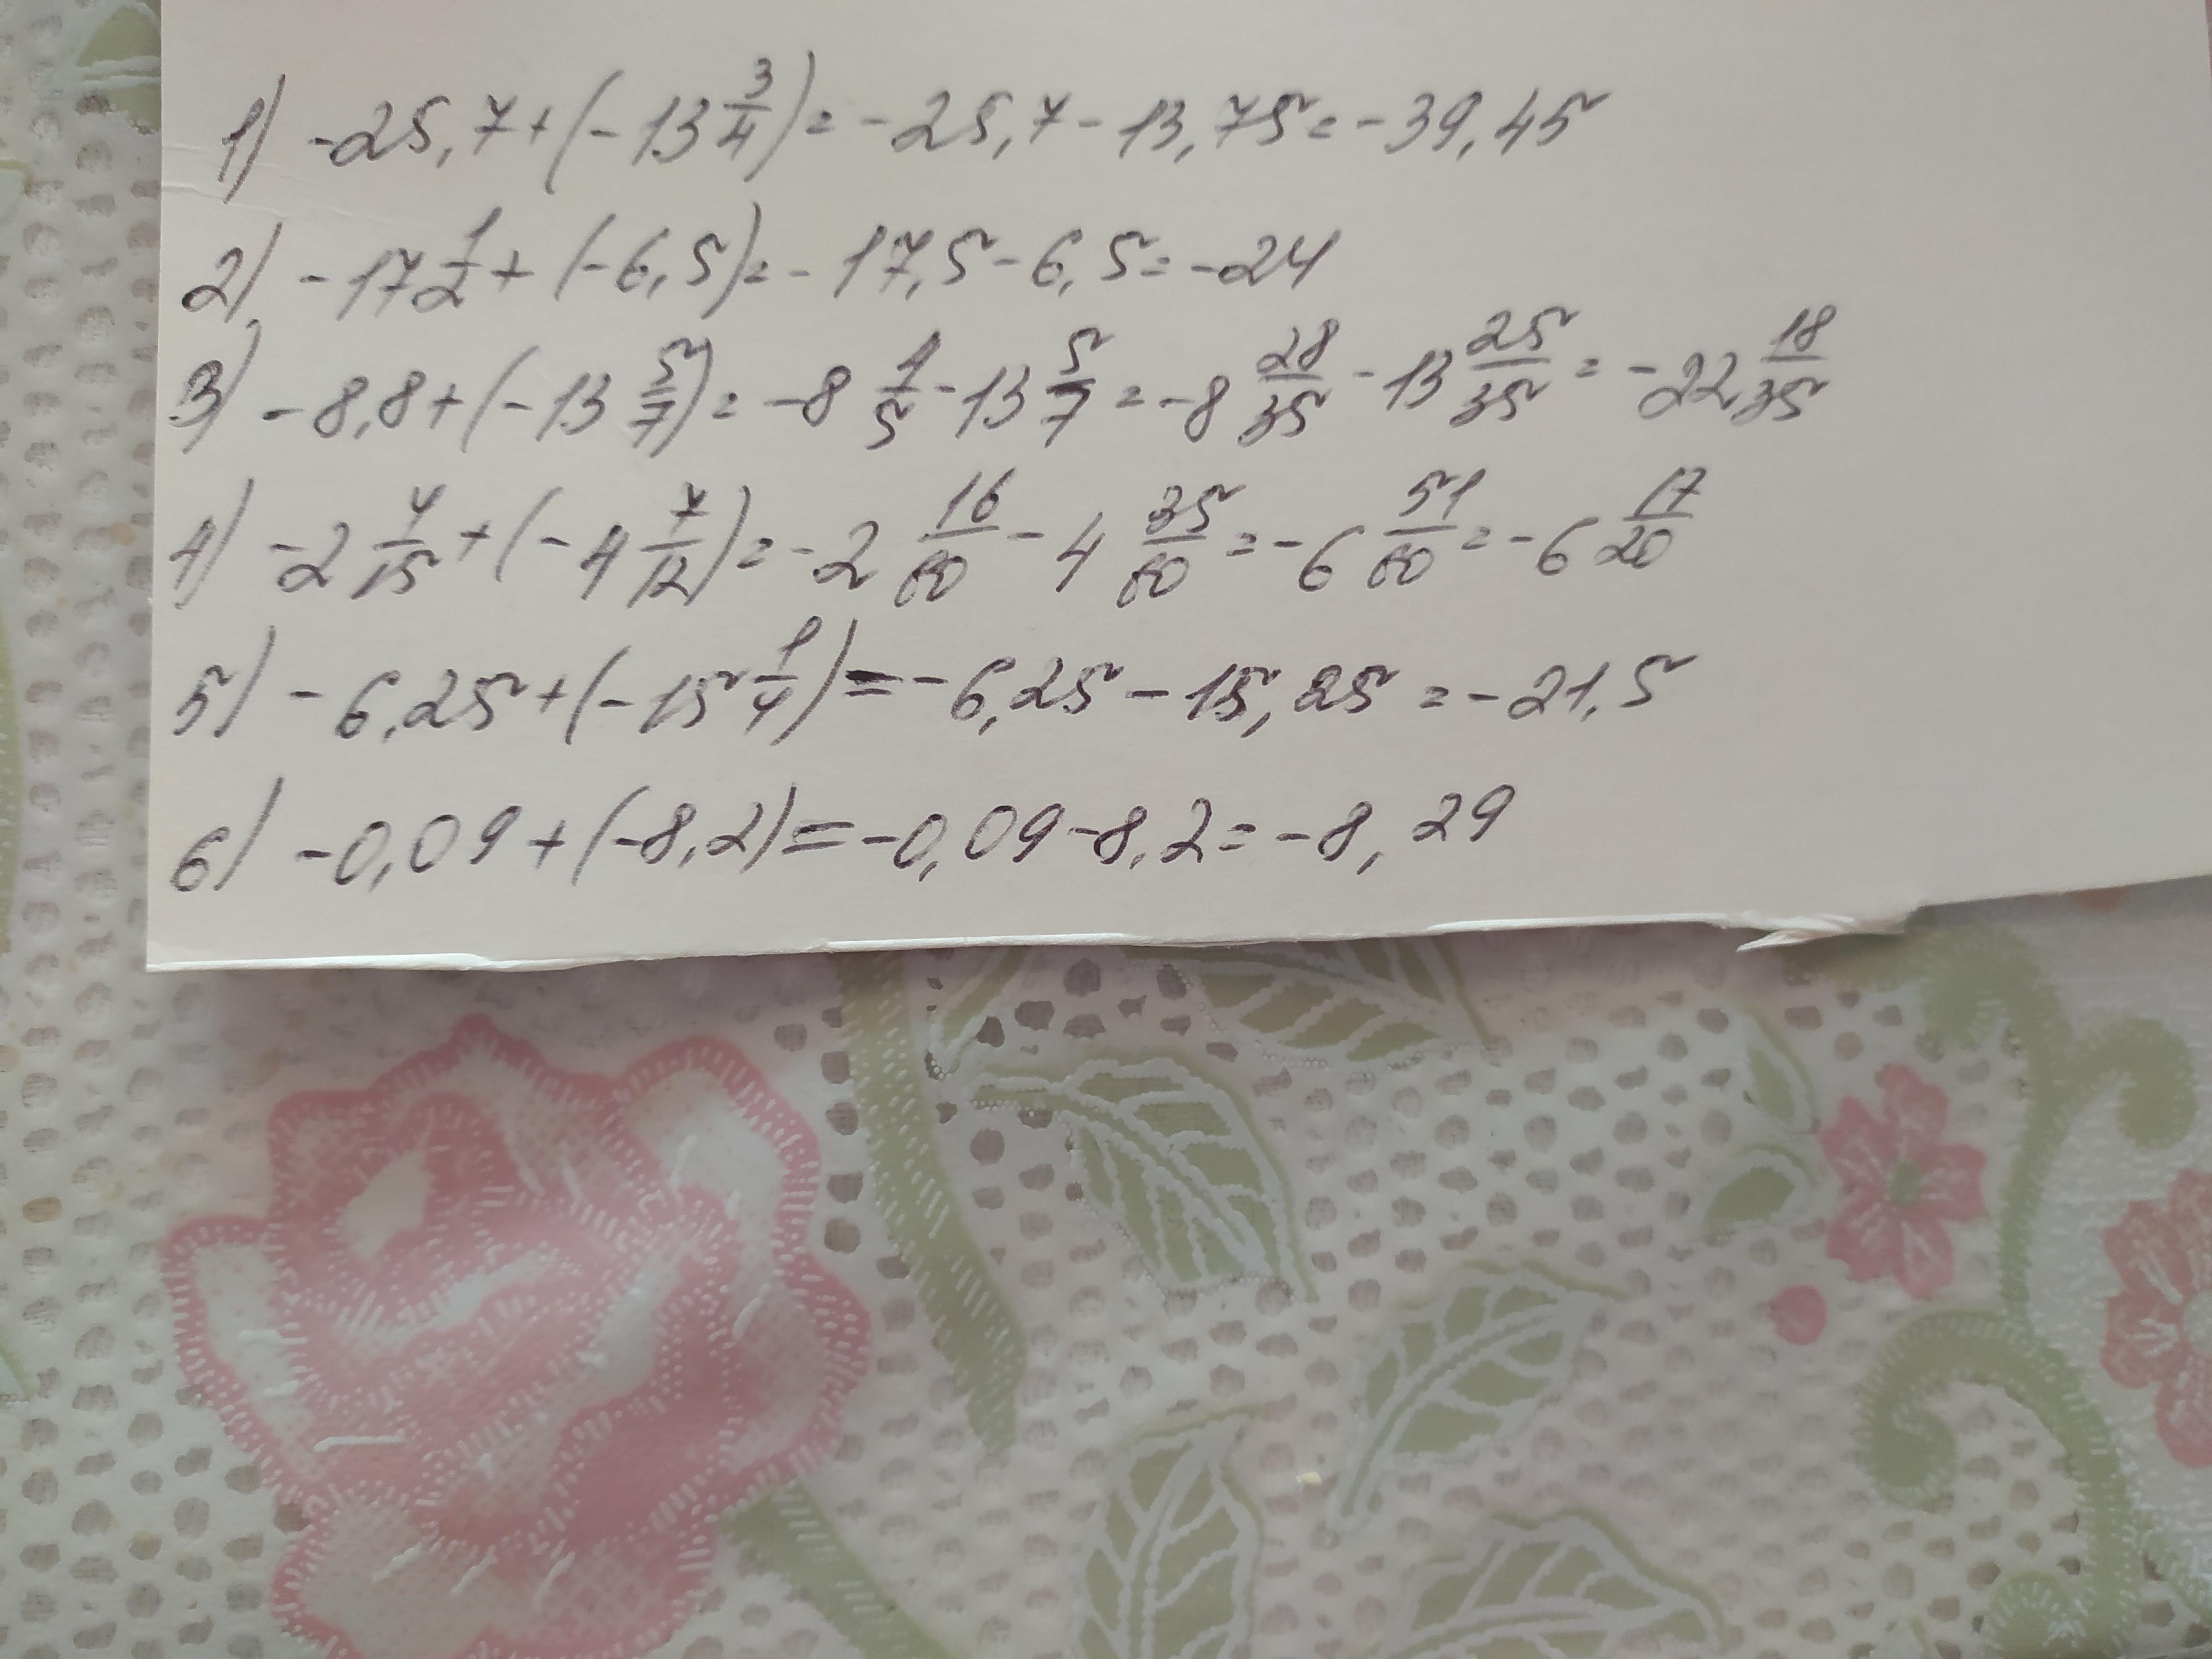 1) -25,7+(-13 3/4)=-25,7-13,75=-39,45
2) -17 1/2+(-6,5)=-17,5-6,5=-24
3) -8,8+(-13 5/7)=-8 4/5-13 5/7=-8 28/35-13 25/35=-22 18/35
4) -2 4/15+(-4 7/12)=-2 16/60-4 35/60=-6 51/60=-6 17/20
5) -6,25+(-15 1/4)=-6,25-15,25=-21,5
6) -0,09+(-8,2)=-0,09-8,2=-8,29